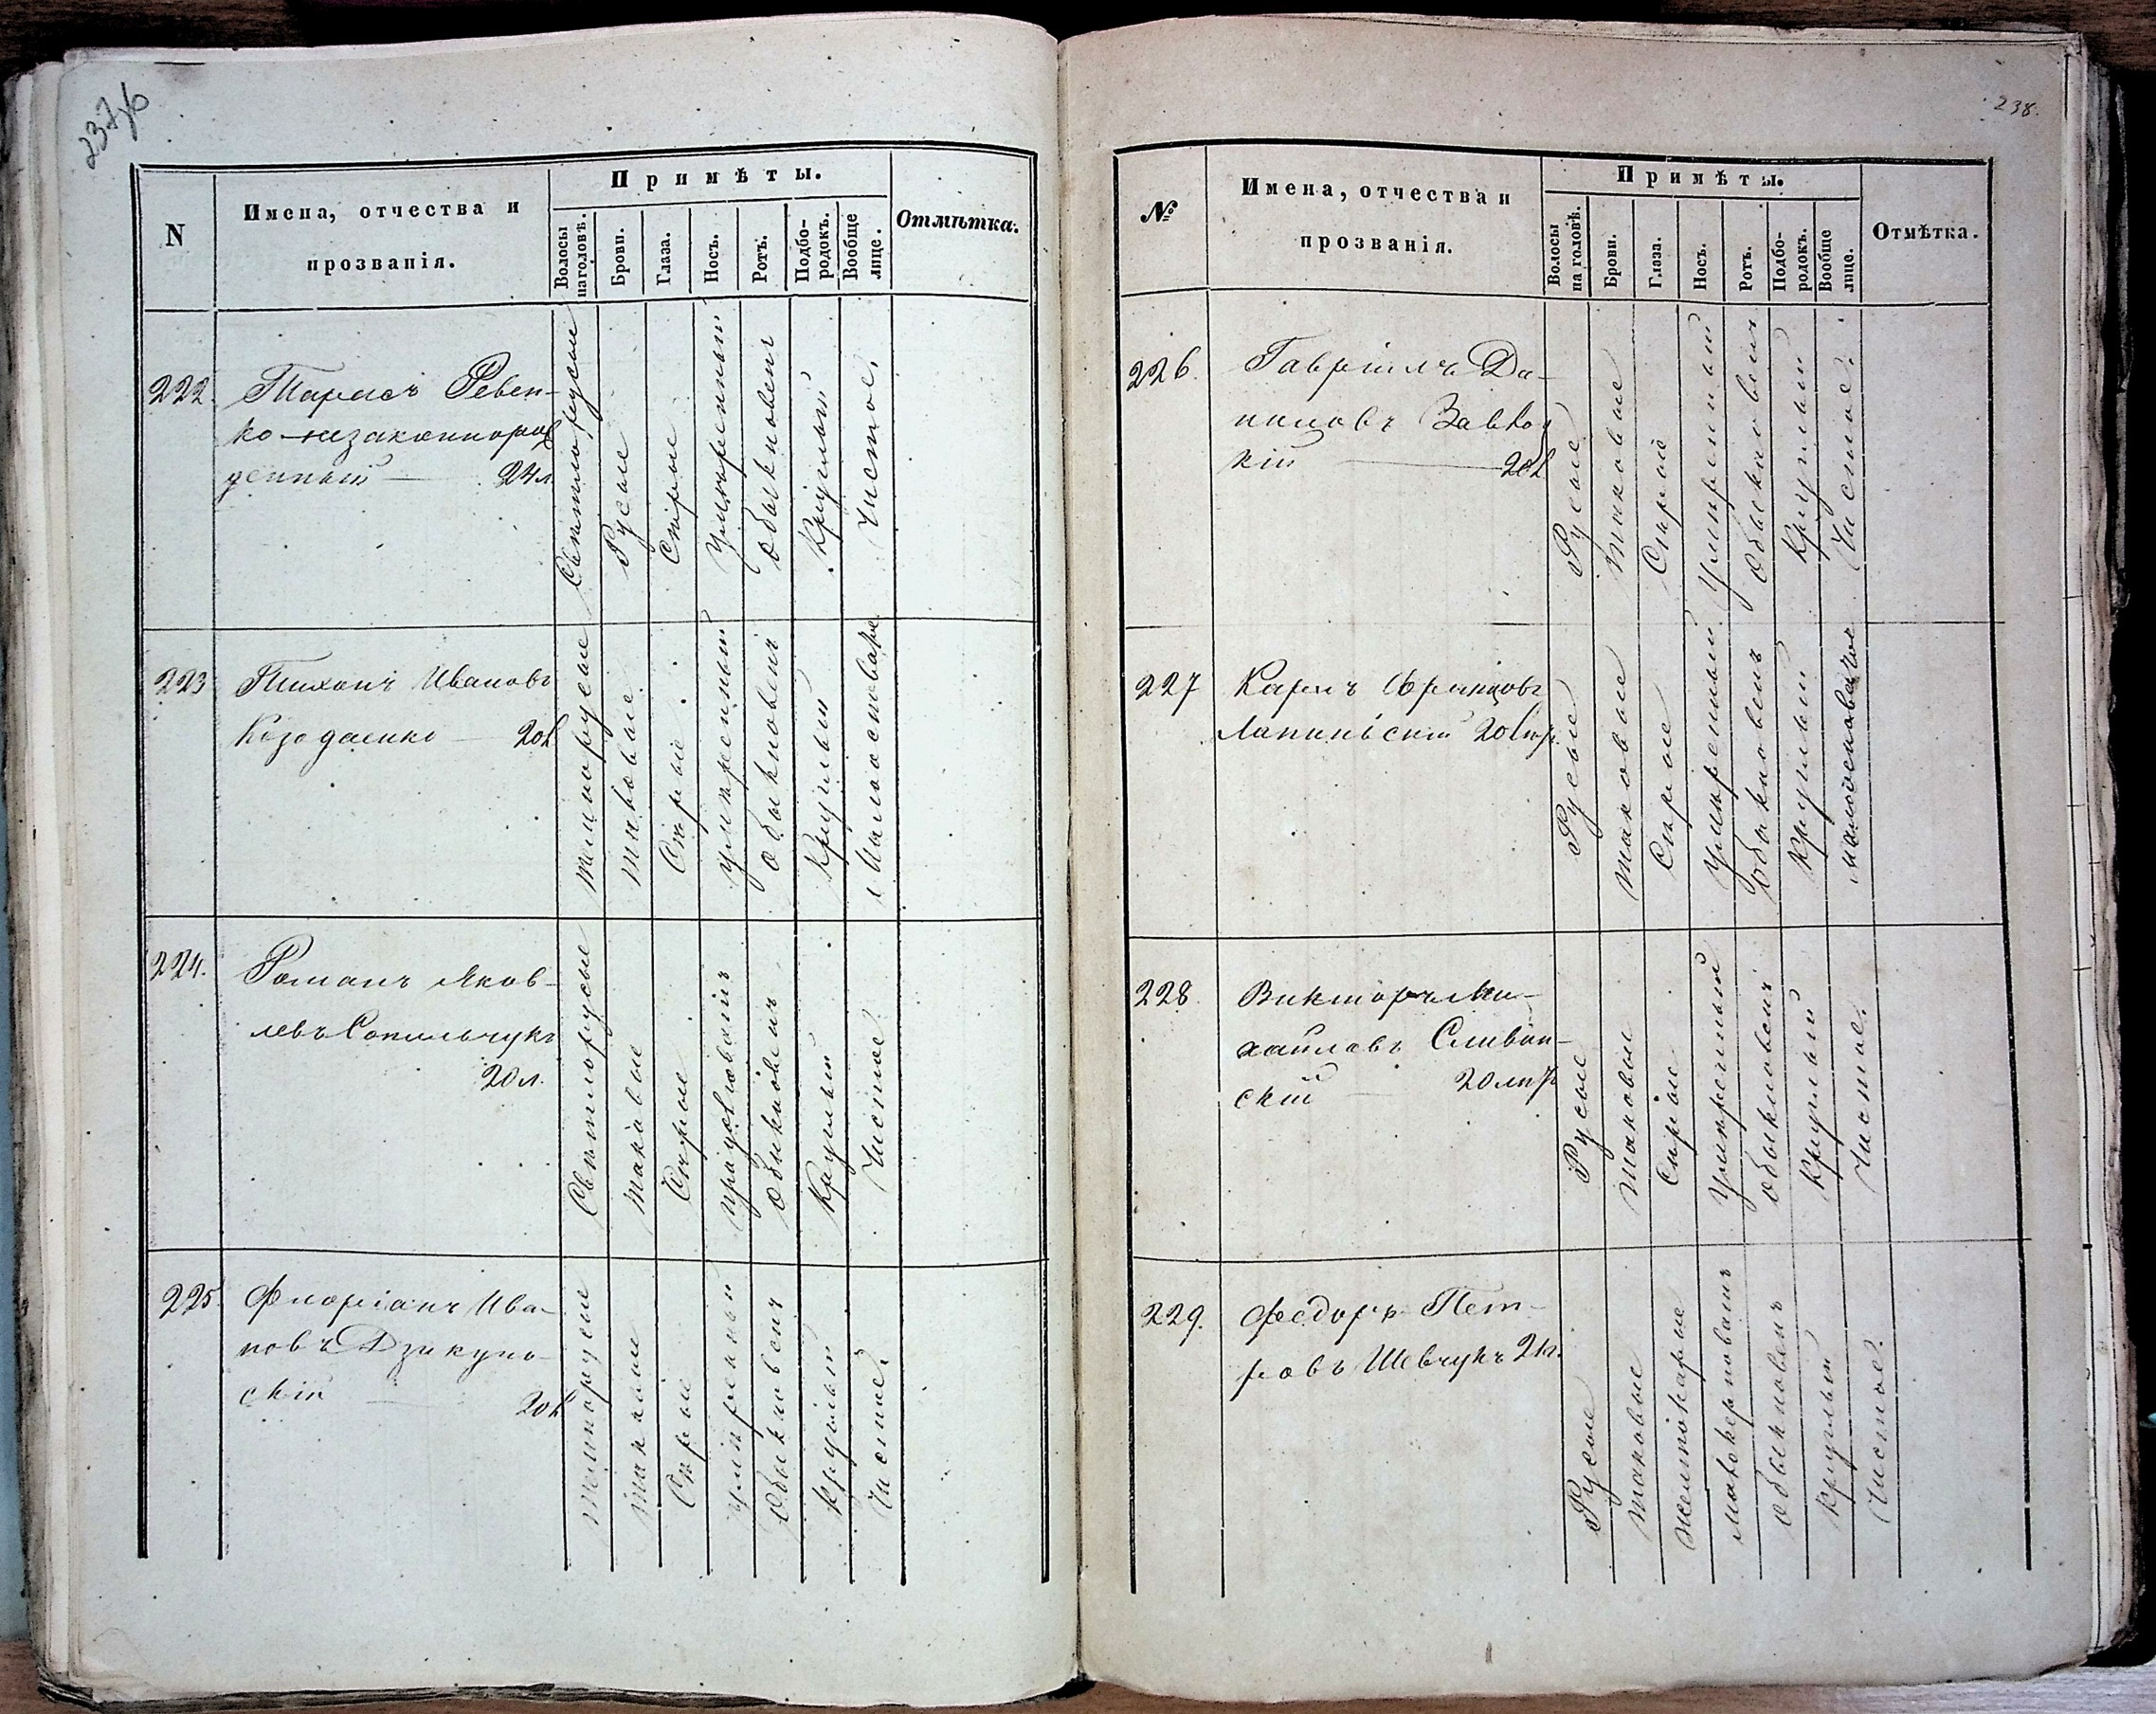 237об
N
Имена, отчества и
прозванія.
Примѣты.
Волосы
на головѣ.
Брови.
Глаза.
Носъ.
Ротъ.
Подбо-
родокъ.
Вообще
лице.
Отмѣтка.
222.
Тарасъ Ревен-
ко незаконнорож
денный — 24 л
Свѣтлорусые
Русые
Сѣрые
Умѣренный
Обыкновенъ
Круглый
Чистое.
223
Тихонъ Ивановъ
Козодаенко — 20 л
Темнорусые
Таковые.
Сѣрые
Умѣренный
Обыкновенъ
Круглый
224.
Романъ Яков-
левъ Сопильчукъ
20 л.
Свѣтлорусые
таковые
Сѣрые
продолговатъ
Обыкновенъ
Круглый
Чистое
225
Флоріанъ Ива-
новъ Дзикунс-
кій — 20 л
Темнорусые
Таковые
Сѣрые
Умѣренный
Обыкновенъ
Круглый
Чистое.
238.
№
Имена, отчества и
прозванія.
Примѣты.
Волосы
на головѣ.
Брови.
Глаза.
Носъ.
Ротъ.
Подбо-
родокъ.
Вообще
лице.
Отмѣтка.
226.
Гавріилъ Да-
ниловъ
кій — 20 л
Русые
Таковые
Сѣрые
Умѣренный
Обыкновенъ
Круглый
Чистое.
227
Карлъ Францовъ
20 л
Русые
Таковые
Сѣрые
Умѣренный
Обыкновенъ
Круглый
228.
Викторъ Ми-
хайловъ Сливин-
скій — 20 л
Русые
Таковые
Сѣрые
Умѣренный
Обыкновенъ
Круглый
Чистое.
229.
Федоръ Пет-
ровъ Шевчукъ 21 л.
Русые
Таковые
Желтокарые
Обыкновенъ
Круглый
Чистое.